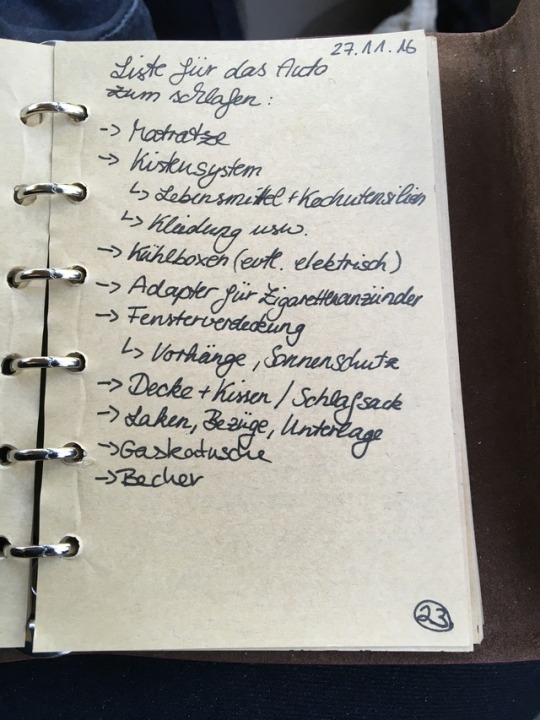 27.11.16
Liste für das Auto
zum schlafen:
-> Matratze
-> Kistensystem
↳ Lebensmittel + Kochutensilien
↳ Kleidung usw.
-> Kühlboxen (evtl. elektrisch)
-> Adapter für Zigarettenanzünder
-> Fensterverdeckung
↳ Vorhänge, Sonnenschutz
-> Decke + Kissen / Schlafsack
-> Laken, Bezüge, Unterlage
-> Gaskartusche
-> Becher
23